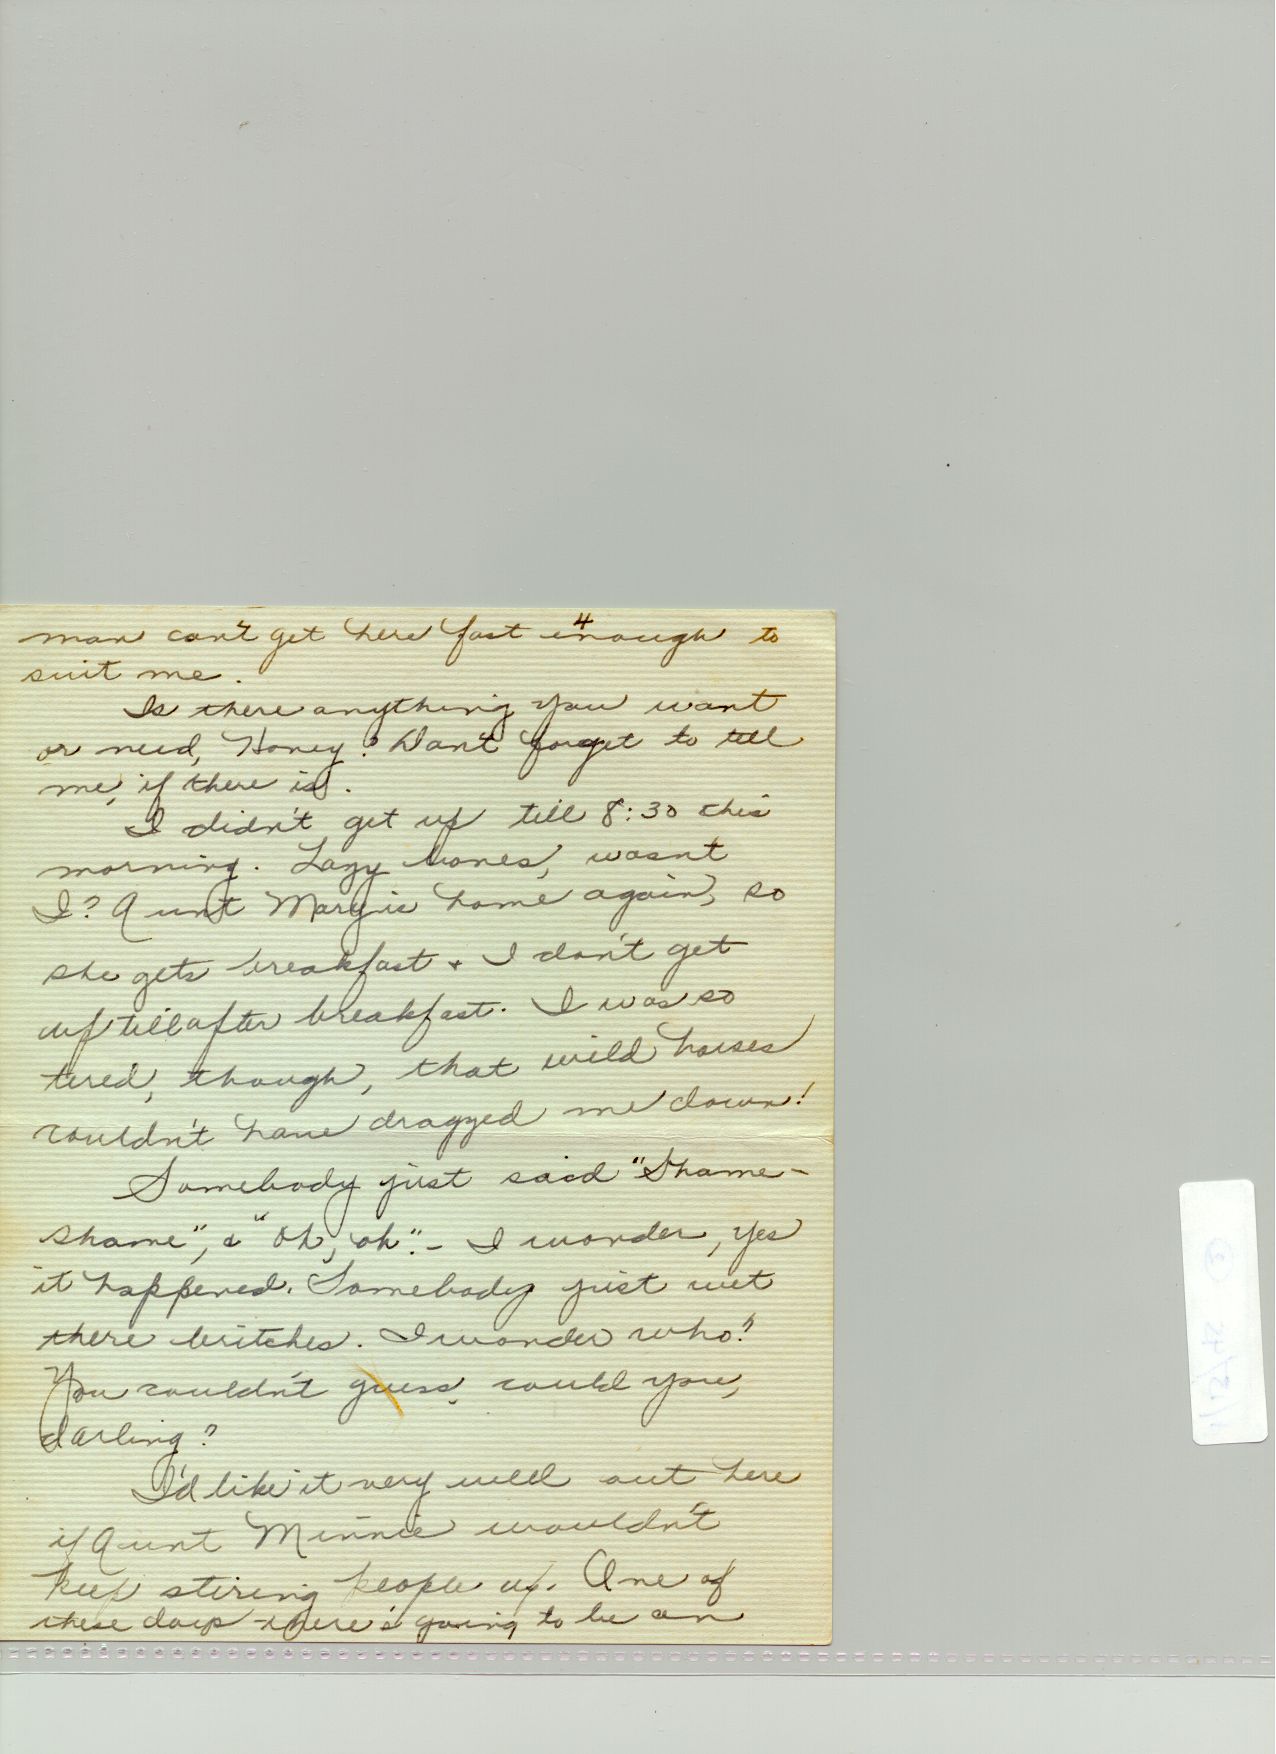 4
man can't get here fast enough to
suit me.
Is there anything you want
or need, Honey? Don't forget to tell
me, if there is.
I didn't get up till 8:30 this
morning. Lazy bones, wasn't
I? Aunt Mary is home again, so
she gets breakfast + I don't get
up till after breakfast. I was so
tired, though, that wild horses
couldn't have dragged me down!
Somebody just said "Shame-
shame", & "Oh, oh". - I wonder, yes
it happened. Somebody just wet
there britches. I wonder who?
You couldn't guess, could you,
darling?
I'd like it very well out here
if Aunt Minnie wouldn't
keep stiring people up. One of
these days there's going to be an